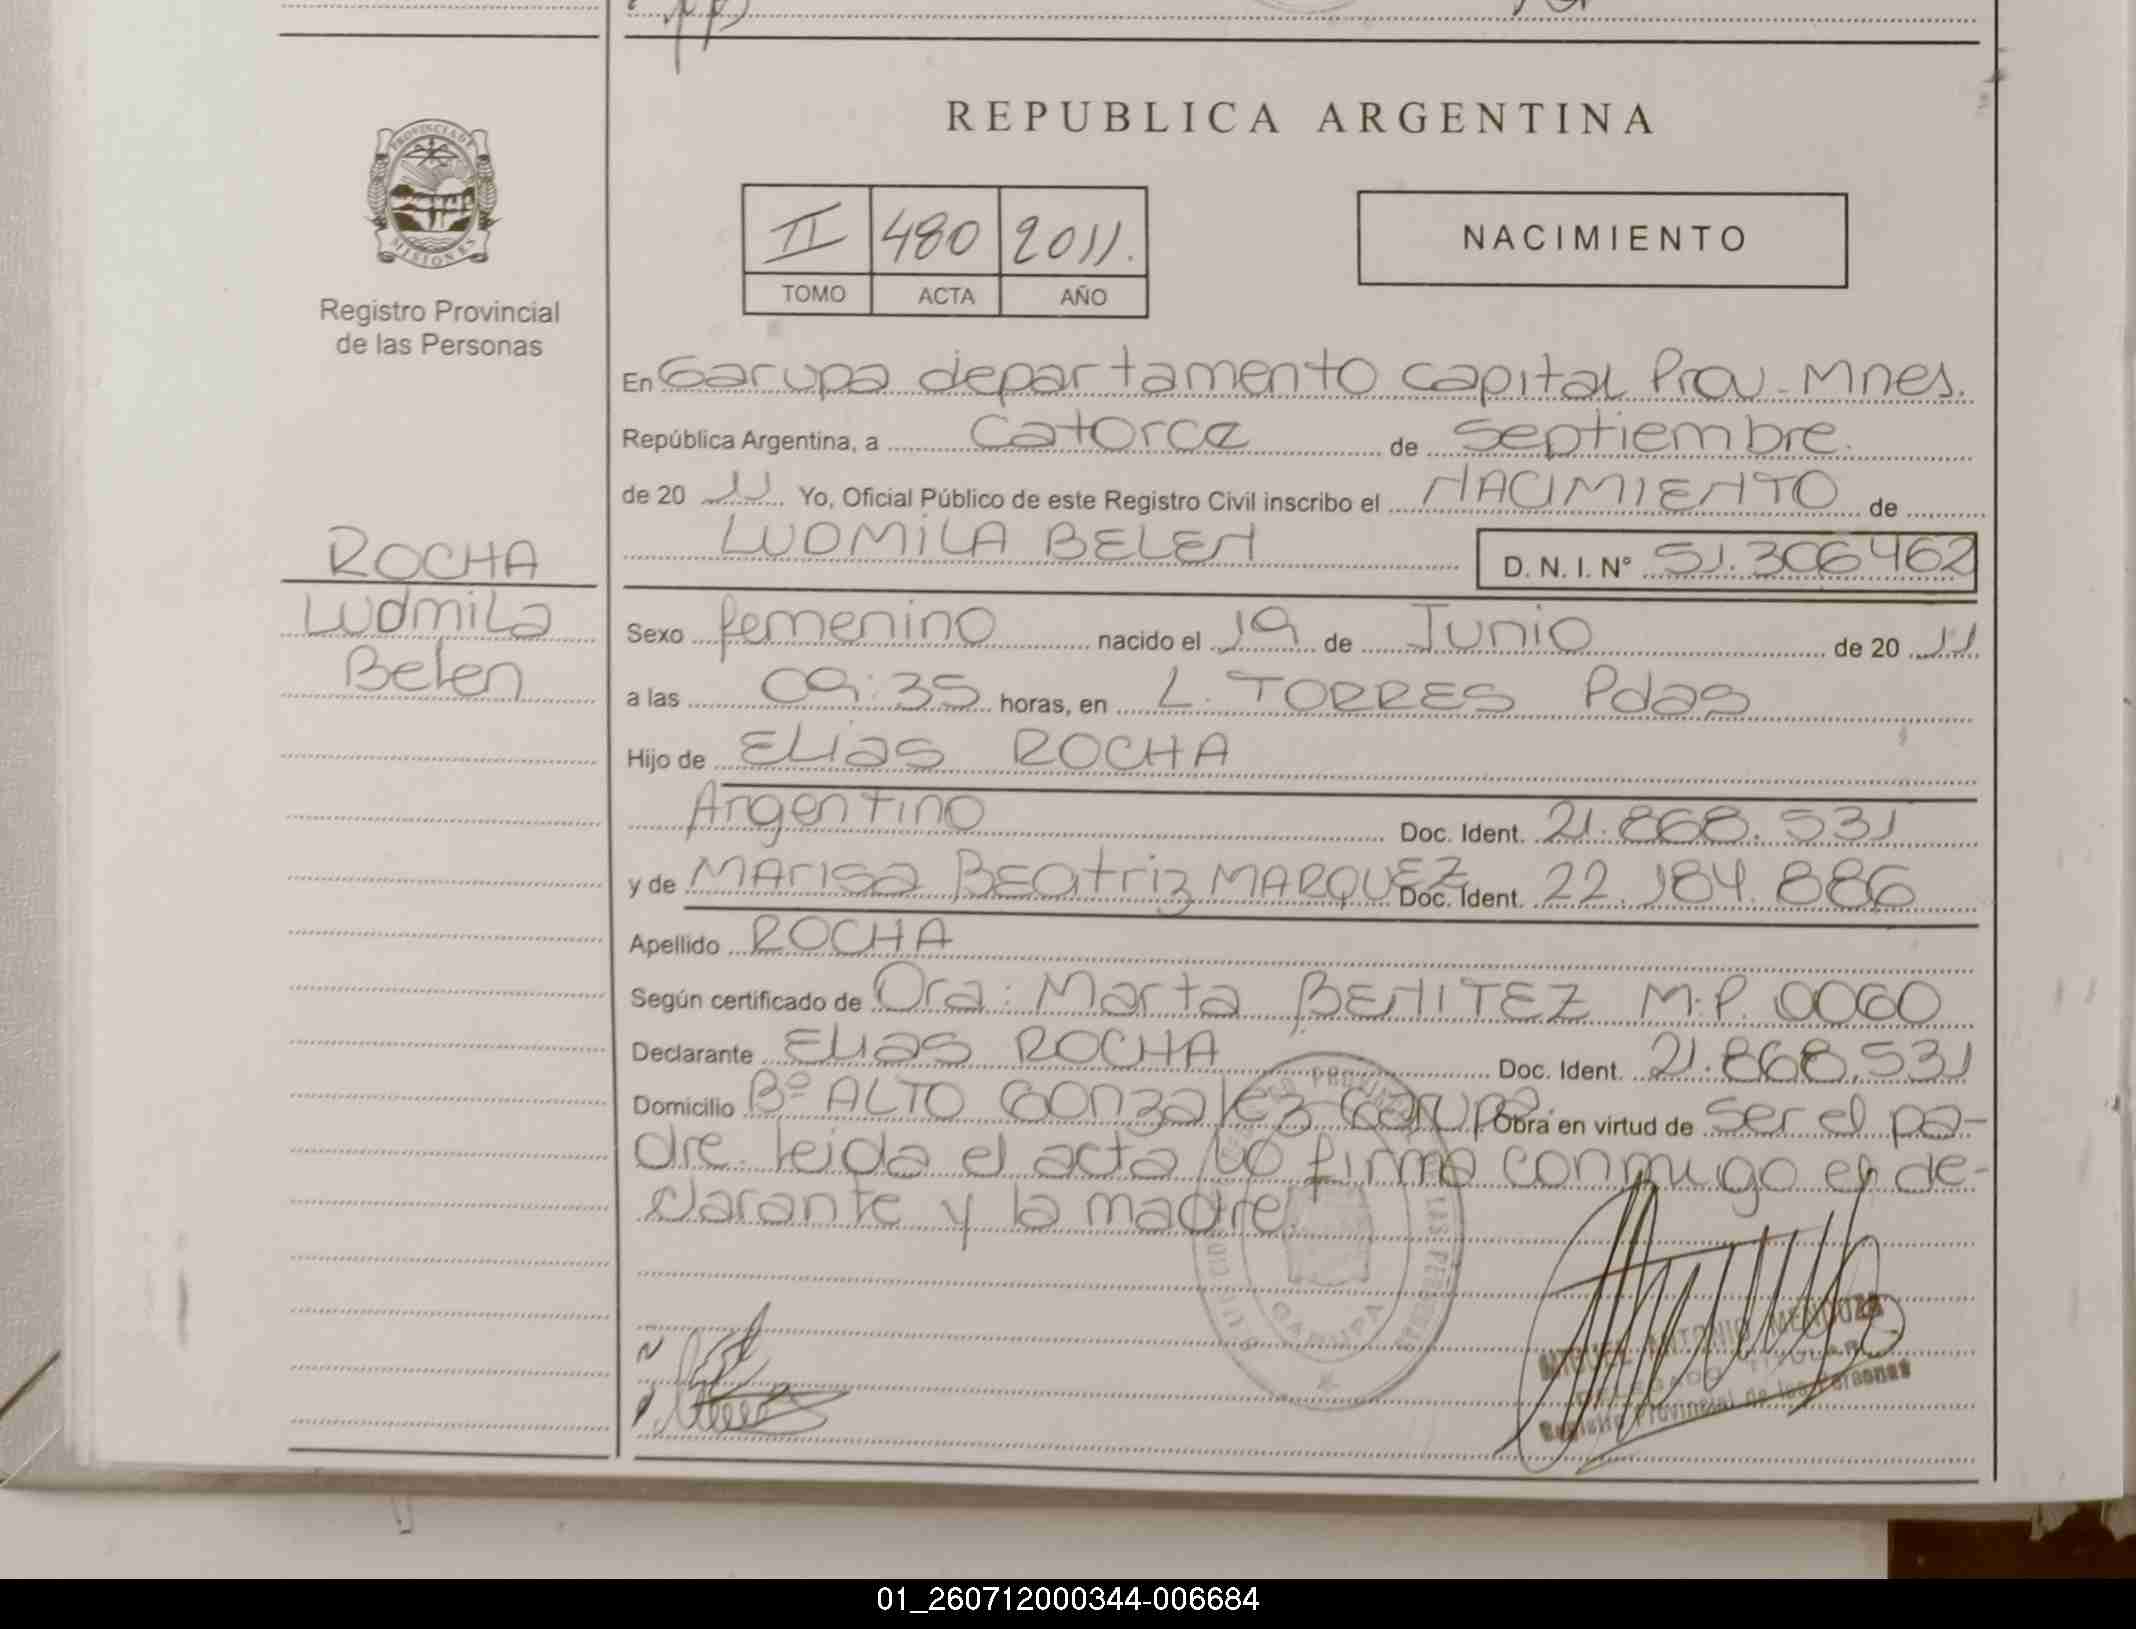 REPUBLICA ARGENTINA
PROVINCIA DE
MISIONES
Registro Provincial
de las Personas
II 480 2011.
TOMO ACTA AÑO
NACIMIENTO
En Garupa departamento Capital Prov. Mnes.
República Argentina, a Catorce de Septiembre.
de 20 11 Yo, Oficial Público de este Registro Civil inscribo el NACIMIENTO de
LUDMILA BELEN D. N. I. N° 51.306462
ROCHA
Ludmila
Belen
Sexo femenino nacido el 19 de Junio de 20 11
a las 09:35 horas, en L. TORRES Pdas
Hijo de Elias ROCHA
Argentino Doc. Ident. 21.868.531
y de MArisa BEatriz MARQUEZ Doc. Ident. 22.184.886
Apellido ROCHA
Según certificado de Dra: Marta BENITEZ M.P. 0060
Declarante Elias ROCHA Doc. Ident. 21.868.531
Domicilio Bº ALTO Gonzalez Garupa. Obra en virtud de ser el pa-
dre. leida el acta lo firma conmigo el de-
clarante y la madre.
GARUPA
MIGUEL ANTONIO MENDOZA
DELEGADO TITULAR
Registro Provincial de las Personas
01_260712000344-006684